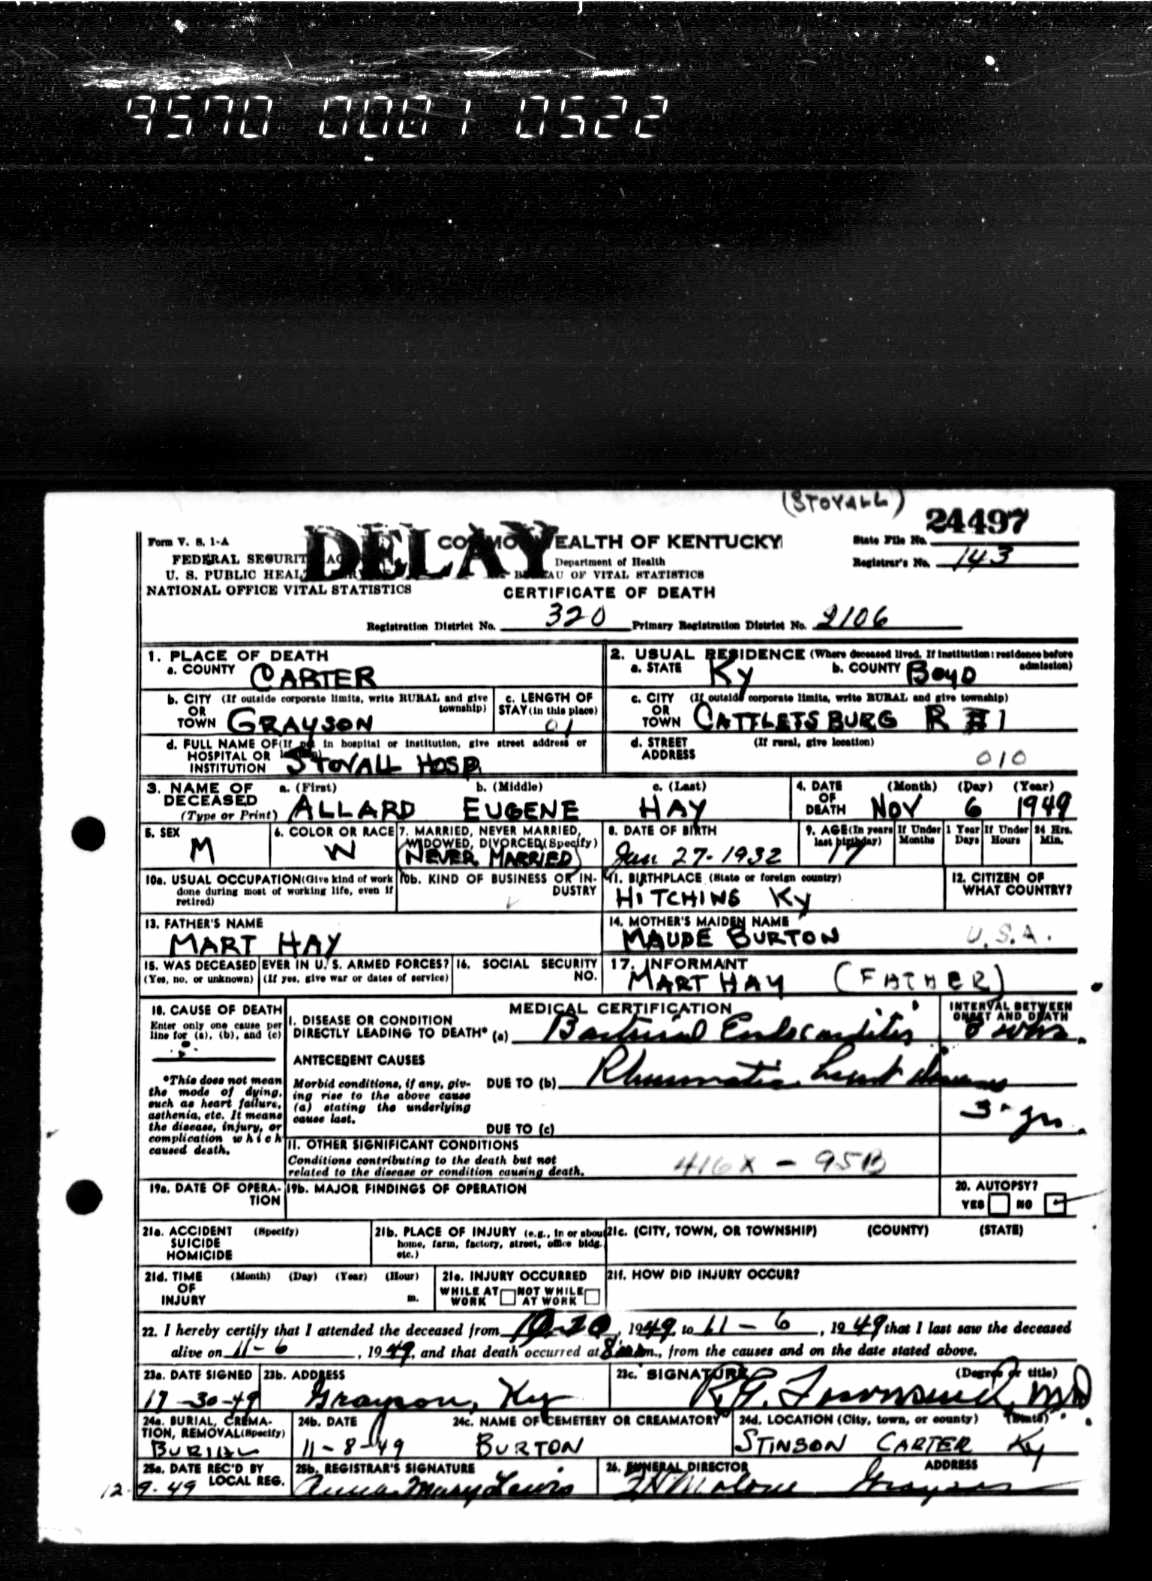 9570 0001 0522
(STOVALL)
24497
Form V. S. 1-A
DELAY
COMMONWEALTH OF KENTUCKY
State File No.
FEDERAL SECURIT
Department of Health
Registrar's No. 143
U. S. PUBLIC HEAL
AU OF VITAL STATISTICS
NATIONAL OFFICE VITAL STATISTICS
CERTIFICATE OF DEATH
Registration District No. 320 Primary Registration District No. 2106
1. PLACE OF DEATH
a. COUNTY CARTER
2. USUAL RESIDENCE (Where deceased lived. If institution: residence before admission)
a. STATE Ky b. COUNTY BOYD
b. CITY (If outside corporate limits, write RURAL and give township)
OR
TOWN GRAYSON
c. LENGTH OF
STAY (in this place)
01
c. CITY (If outside corporate limits, write RURAL and give township)
OR
TOWN CATTLETSBURG R #1
d. FULL NAME OF (If not in hospital or institution, give street address or location)
HOSPITAL OR
INSTITUTION STOVALL HOSP.
d. STREET (If rural, give location)
ADDRESS
010
3. NAME OF
DECEASED
(Type or Print)
a. (First) b. (Middle) c. (Last)
ALLARD EUGENE HAY
4. DATE
OF
DEATH
(Month) (Day) (Year)
NOV 6 1949
5. SEX
M
6. COLOR OR RACE
W
7. MARRIED, NEVER MARRIED,
WIDOWED, DIVORCED (Specify)
(NEVER MARRIED)
8. DATE OF BIRTH
Jan 27-1932
9. AGE (In years
last birthday)
17
If Under 1 Year
Months Days
If Under 24 Hrs.
Hours Min.
10a. USUAL OCCUPATION (Give kind of work
done during most of working life, even if
retired)
10b. KIND OF BUSINESS OR IN-
DUSTRY
11. BIRTHPLACE (State or foreign country)
HITCHINS Ky
12. CITIZEN OF
WHAT COUNTRY?
U.S.A.
13. FATHER'S NAME
MART HAY
14. MOTHER'S MAIDEN NAME
MAUDE BURTON
15. WAS DECEASED EVER IN U. S. ARMED FORCES?
(Yes, no, or unknown) (If yes, give war or dates of service)
16. SOCIAL SECURITY
NO.
17. INFORMANT
MART HAY (FATHER)
18. CAUSE OF DEATH
Enter only one cause per
line for (a), (b), and (c)
*This does not mean
the mode of dying,
such as heart failure,
asthenia, etc. It means
the disease, injury, or
complication which
caused death.
MEDICAL CERTIFICATION
INTERVAL BETWEEN
ONSET AND DEATH
I. DISEASE OR CONDITION
DIRECTLY LEADING TO DEATH* (a) Bacterial Endocarditis
wks.
ANTECEDENT CAUSES
Morbid conditions, if any, giv-
ing rise to the above cause
(a) stating the underlying
cause last.
DUE TO (b) Rheumatic heart disease
3 yrs.
DUE TO (c)
II. OTHER SIGNIFICANT CONDITIONS
Conditions contributing to the death but not
related to the disease or condition causing death.
416X - 95B
19a. DATE OF OPERA-
TION
19b. MAJOR FINDINGS OF OPERATION
20. AUTOPSY?
YES NO
21a. ACCIDENT (Specify)
SUICIDE
HOMICIDE
21b. PLACE OF INJURY (e.g., in or about
home, farm, factory, street, office bldg.
etc.)
21c. (CITY, TOWN, OR TOWNSHIP) (COUNTY) (STATE)
21d. TIME (Month) (Day) (Year) (Hour)
OF
INJURY m.
21e. INJURY OCCURRED
WHILE AT WORK NOT WHILE AT WORK
21f. HOW DID INJURY OCCUR?
22. I hereby certify that I attended the deceased from 10-20, 1949, to 11-6, 1949 that I last saw the deceased
alive on 11-6, 1949, and that death occurred at m., from the causes and on the date stated above.
23a. DATE SIGNED
-30-49
23b. ADDRESS
Grayson, Ky
23c. SIGNATURE (Degree or title)
R.G. Townsend, MD
24a. BURIAL, CREMA-
TION, REMOVAL (Specify)
BURIAL
24b. DATE
11-8-49
24c. NAME OF CEMETERY OR CREAMATORY
BURTON
24d. LOCATION (City, town, or county) (State)
STINSON CARTER Ky
25a. DATE REC'D BY
LOCAL REG.
12-9-49
25b. REGISTRAR'S SIGNATURE
Anna Mary Lewis
26. FUNERAL DIRECTOR ADDRESS
Malone Grayson